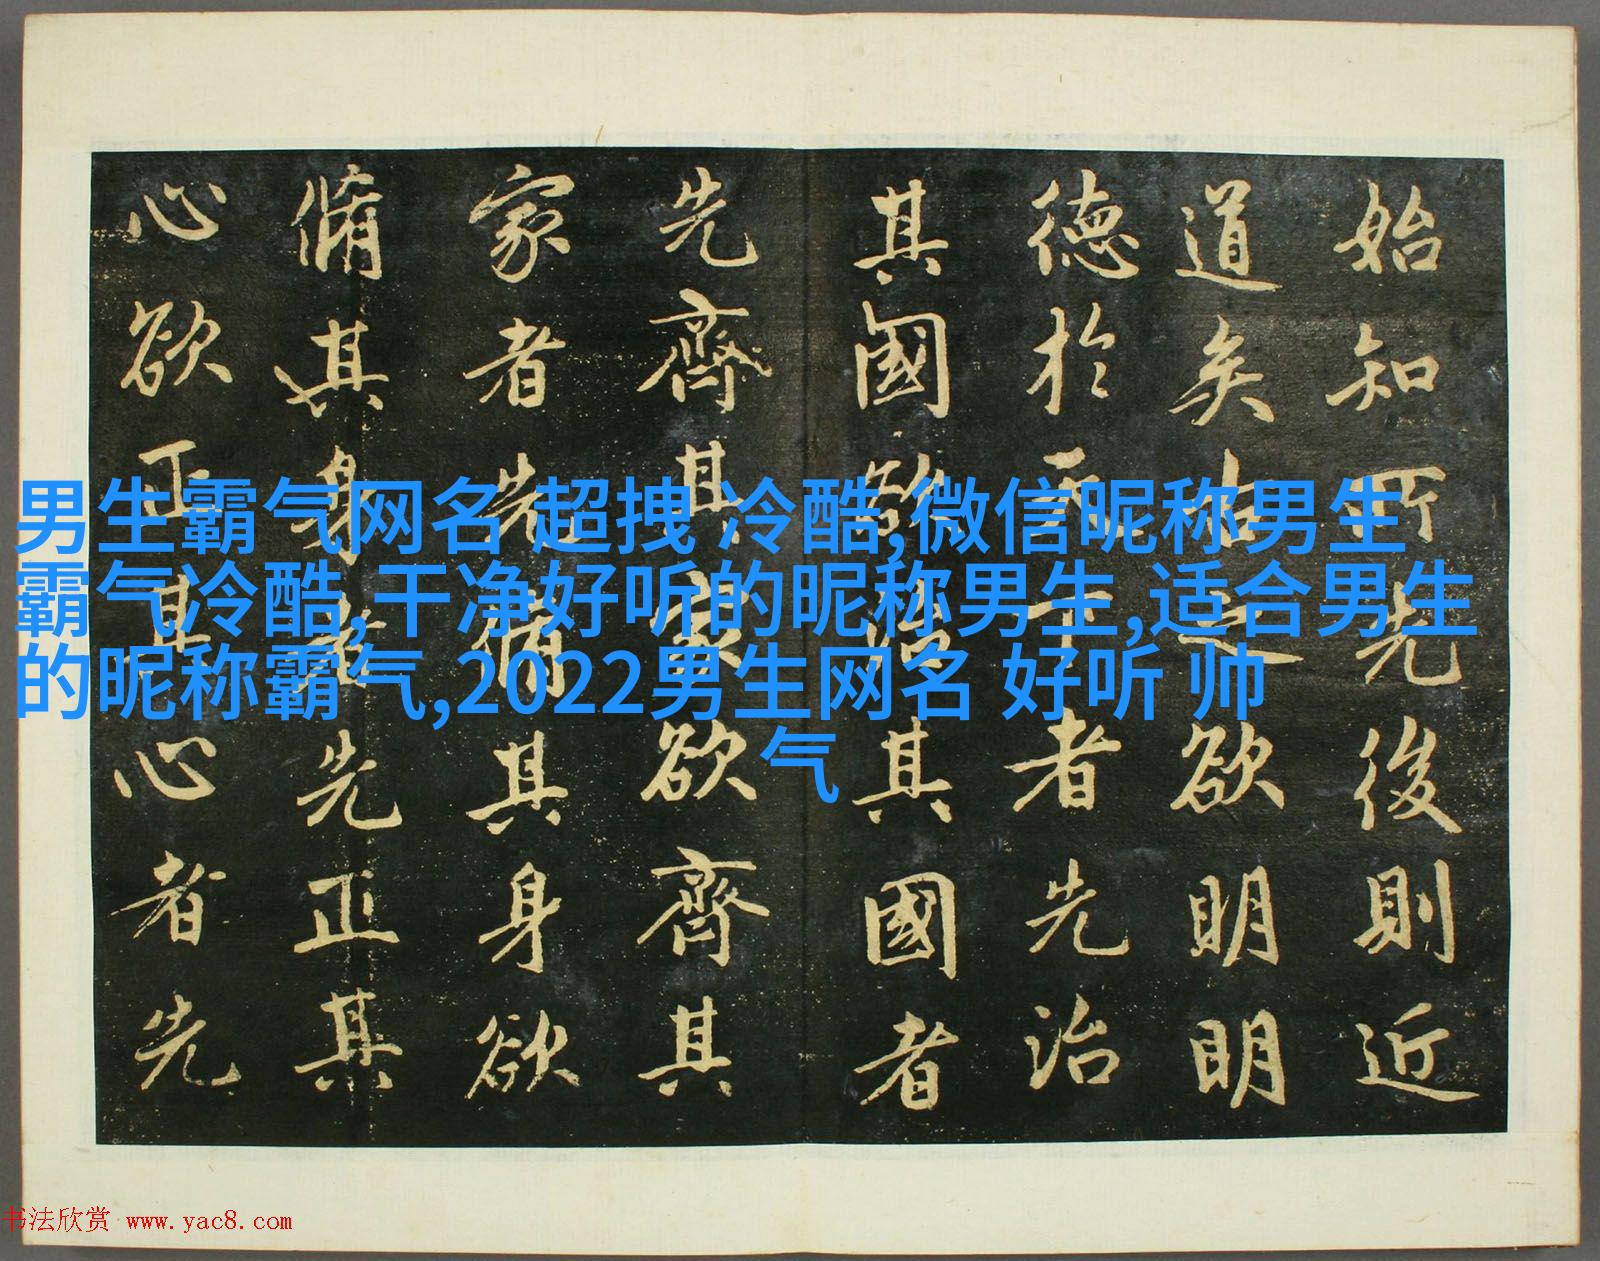 始知所先後則近
道矣古之欲明明
德於天下者先治
其國欲治其國者
先齊其家欲齊其
家者先脩其身欲
脩其身者先正其
心欲正其心者先
男生霸气网名 超拽 冷酷,微信昵称男生
霸气冷酷,干净好听的昵称男生,适合男生
的昵称霸气,2022男生网名 好听 帅
气
书法欣赏 www.yac8.com